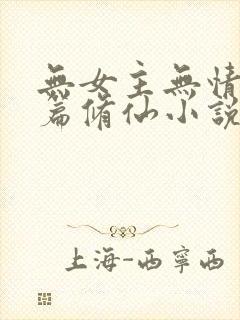 無女主無情
篇脩仙小說
上海-西寧西